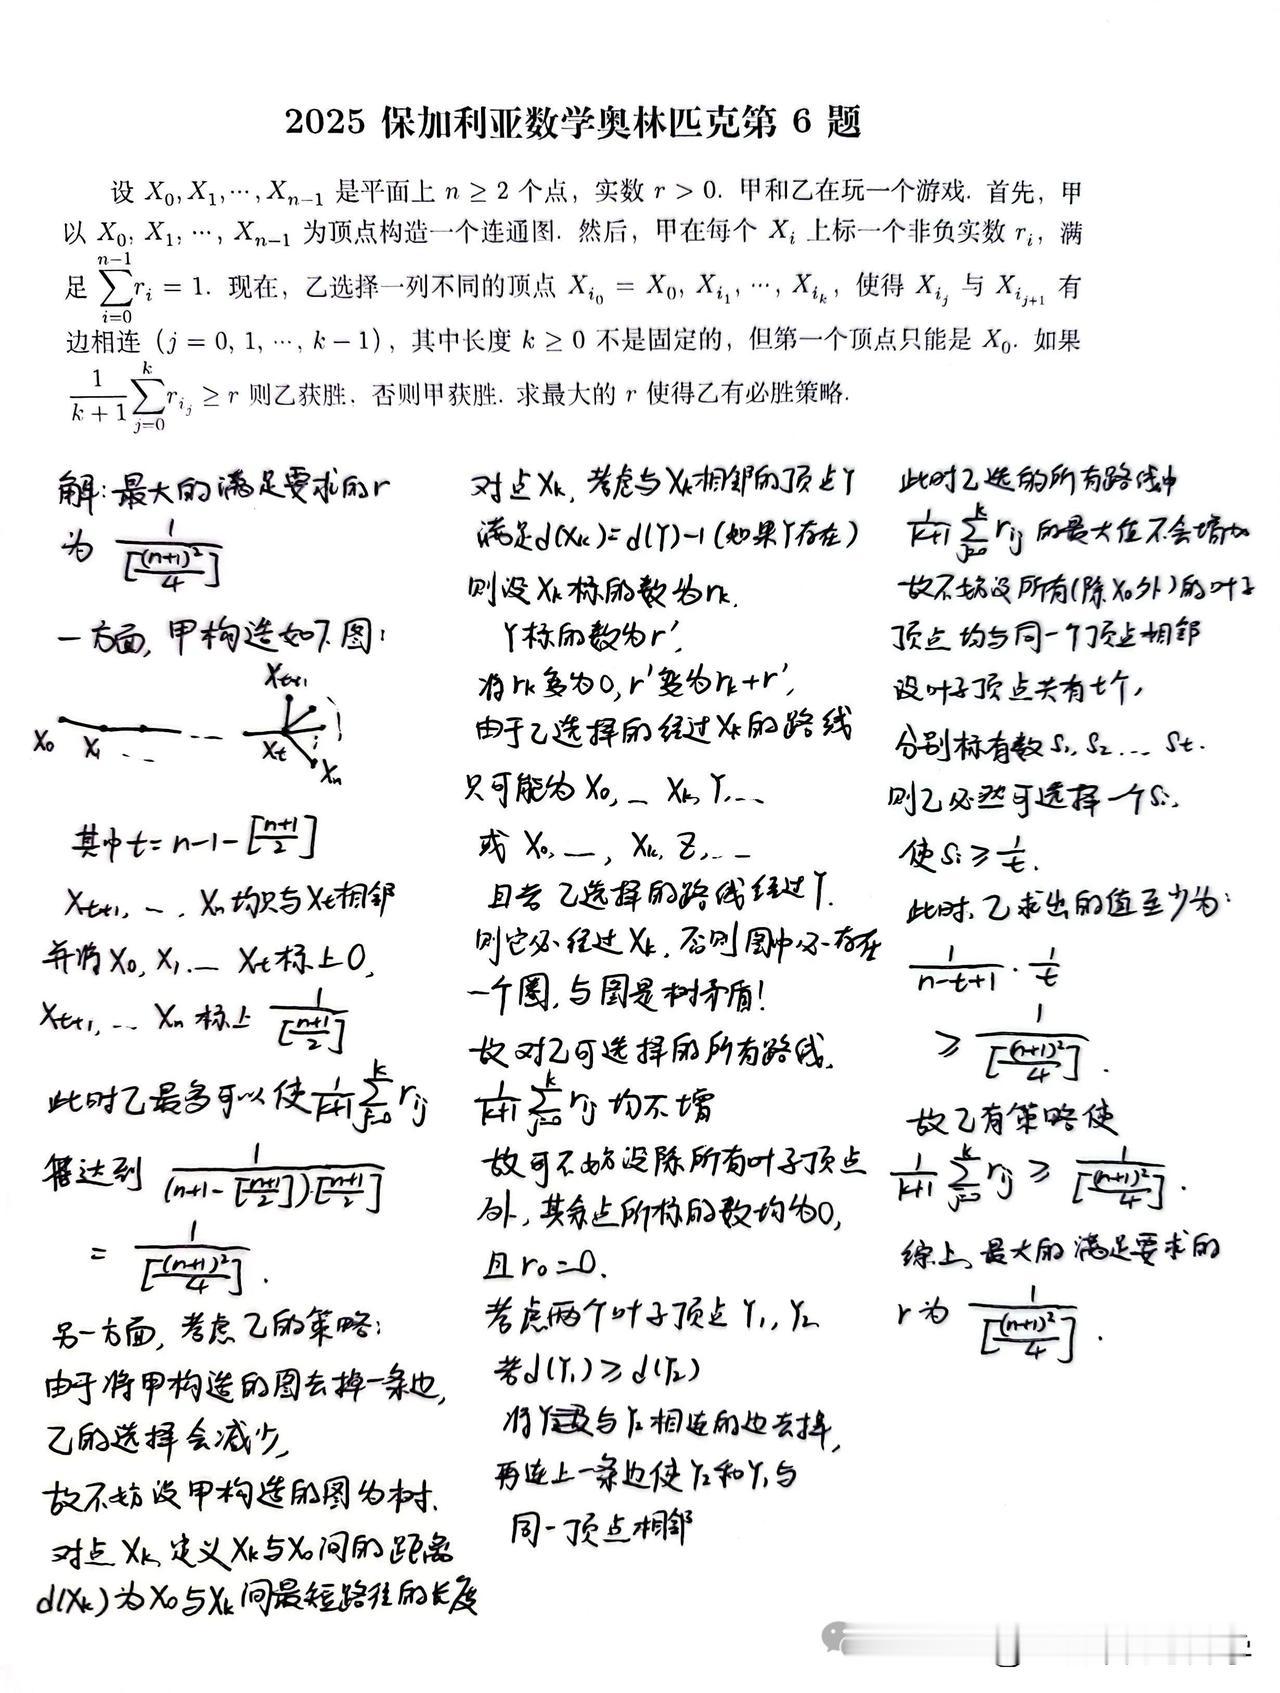 2025 保加利亚数学奥林匹克第 6 题
设 X₀, X₁, ⋯, Xₙ₋₁ 是平面上 n ≥ 2 个点，实数 r > 0. 甲和乙在玩一个游戏. 首先，甲
以 X₀, X₁, ⋯, Xₙ₋₁ 为顶点构造一个连通图. 然后，甲在每个 Xᵢ 上标一个非负实数 rᵢ，满
足 \sum_{i=0}^{n-1} rᵢ = 1. 现在，乙选择一列不同的顶点 X_{i_0} = X₀, X_{i_1}, ⋯, X_{i_k}，使得 X_{i_j} 与 X_{i_{j+1}} 有
边相连（j = 0, 1, ⋯, k − 1），其中长度 k ≥ 0 不是固定的，但第一个顶点只能是 X₀. 如果
\frac{1}{k+1} \sum_{j=0}^{k} r_{i_j} ≥ r 则乙获胜，否则甲获胜. 求最大的 r 使得乙有必胜策略.
解: 最大的满足要求的r
为 \frac{1}{[\frac{(n+1)^2}{4}]}
一方面, 甲构造如下图:
X_{t+1}
X₀ X₁ ... ... X_t Xₙ
其中 t = n-1-[\frac{n+1}{2}]
X_{t+1}, …, Xₙ均只与X_t相邻
并将 X₀, X₁, … X_t 标上 0,
X_{t+1}, … Xₙ 标上 \frac{1}{[\frac{n+1}{2}]}
此时乙最多可以使 \frac{1}{k+1} \sum_{j=0}^{k} r_{ij}
达到 \frac{1}{(n+1-[\frac{n+1}{2}])·[\frac{n+1}{2}]}
= \frac{1}{[\frac{(n+1)^2}{4}]} .
另一方面, 考虑乙的策略:
由于将甲构造的图去掉一条边,
乙的选择会减少,
故不妨设甲构造的图为树.
对点 X_k, 定义 X_k与X₀间的距离
d(X_k) 为 X₀与X_k间最短路径的长度
对点 X_k, 考虑与X_k相邻的顶点Y
满足 d(X_k) = d(Y)-1 (如果Y存在)
则设 X_k标的数为 r_k.
Y标的数为 r',
将 r_k 变为0, r'变为 r_k+r',
由于乙选择的经过 X_k 的路线
只可能为 X₀, … X_k, Y, …
或 X₀, …, X_k, Z, …
且若乙选择的路线经过 Y.
则它必经过 X_k, 否则图中必存在
一个圈, 与图是树矛盾!
故对乙可选择的所有路线,
\frac{1}{k+1} \sum_{j=0}^{k} r_{ij} 均不增
故可不妨设除所有叶子顶点
外, 其余点所标的数均为0,
且 r₀=0.
考虑两个叶子顶点 Y₁, Y₂
若 d(Y₁) ≥ d(Y₂)
与Y₂相连的边去掉,
再连上一条边使 Y₂和Y₁与
同一顶点相邻
此时乙选的所有路线中
\frac{1}{k+1} \sum_{j=0}^{k} r_{ij} 的最大值不会增加
故不妨设所有(除X₀外)的叶子
顶点均与同一个顶点相邻
设叶子顶点共有t个,
分别标有数 S₁, S₂ … S_t.
则乙必然可选择一个 Sᵢ,
使 Sᵢ ≥ \frac{1}{t}.
此时, 乙求出的值至少为:
\frac{1}{n-t+1} · \frac{1}{t}
≥ \frac{1}{[\frac{(n+1)^2}{4}]} .
故乙有策略使
\frac{1}{k+1} \sum_{j=0}^{k} r_{ij} ≥ \frac{1}{[\frac{(n+1)^2}{4}]} .
综上, 最大的满足要求的
r为 \frac{1}{[\frac{(n+1)^2}{4}]} .